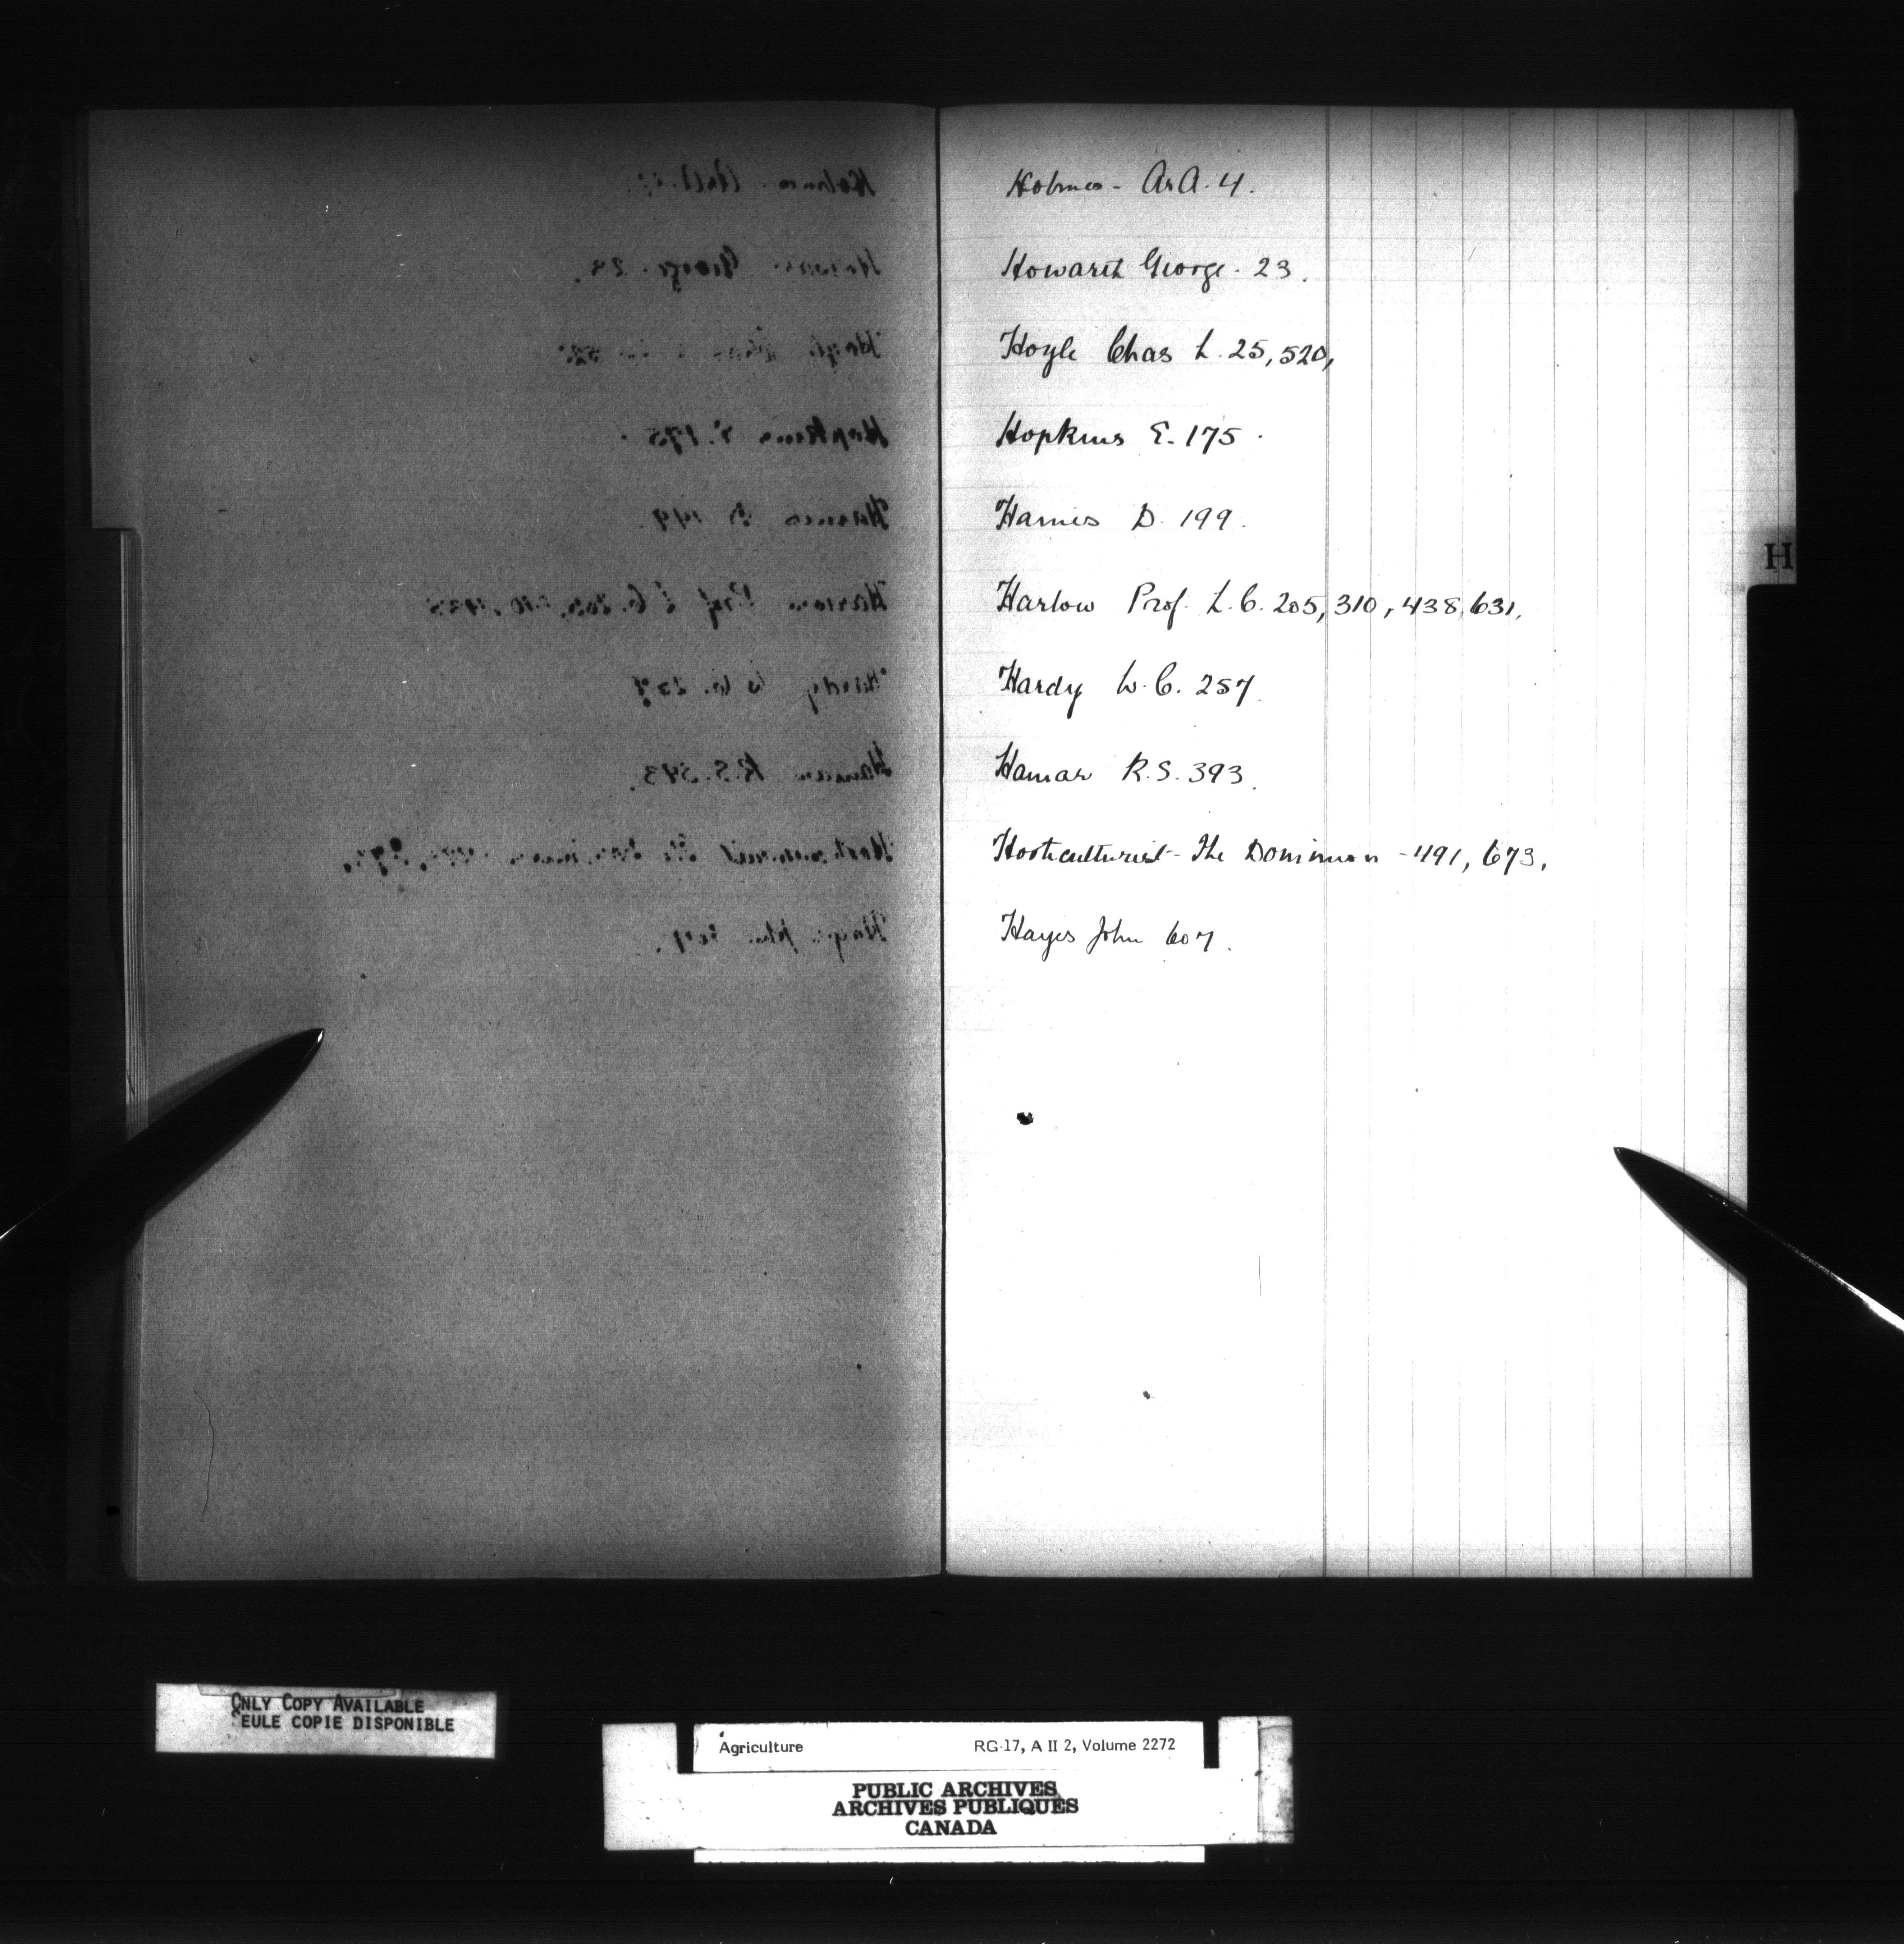 Holmes - A. A. 4.
Howarth George. 23.
Hoyle Chas L. 25, 520,
Hopkins E. 175.
Harris D. 199.
Harlow Prof. L. C. 205, 310, 438, 631,
Hardy W. C. 257.
Hamar R. S. 393.
Horticulturist - The Dominion - 491, 673,
Hayes John 607.
H
ONLY COPY AVAILABLE
SEULE COPIE DISPONIBLE
Agriculture RG-17, A II 2, Volume 2272
PUBLIC ARCHIVES
ARCHIVES PUBLIQUES
CANADA